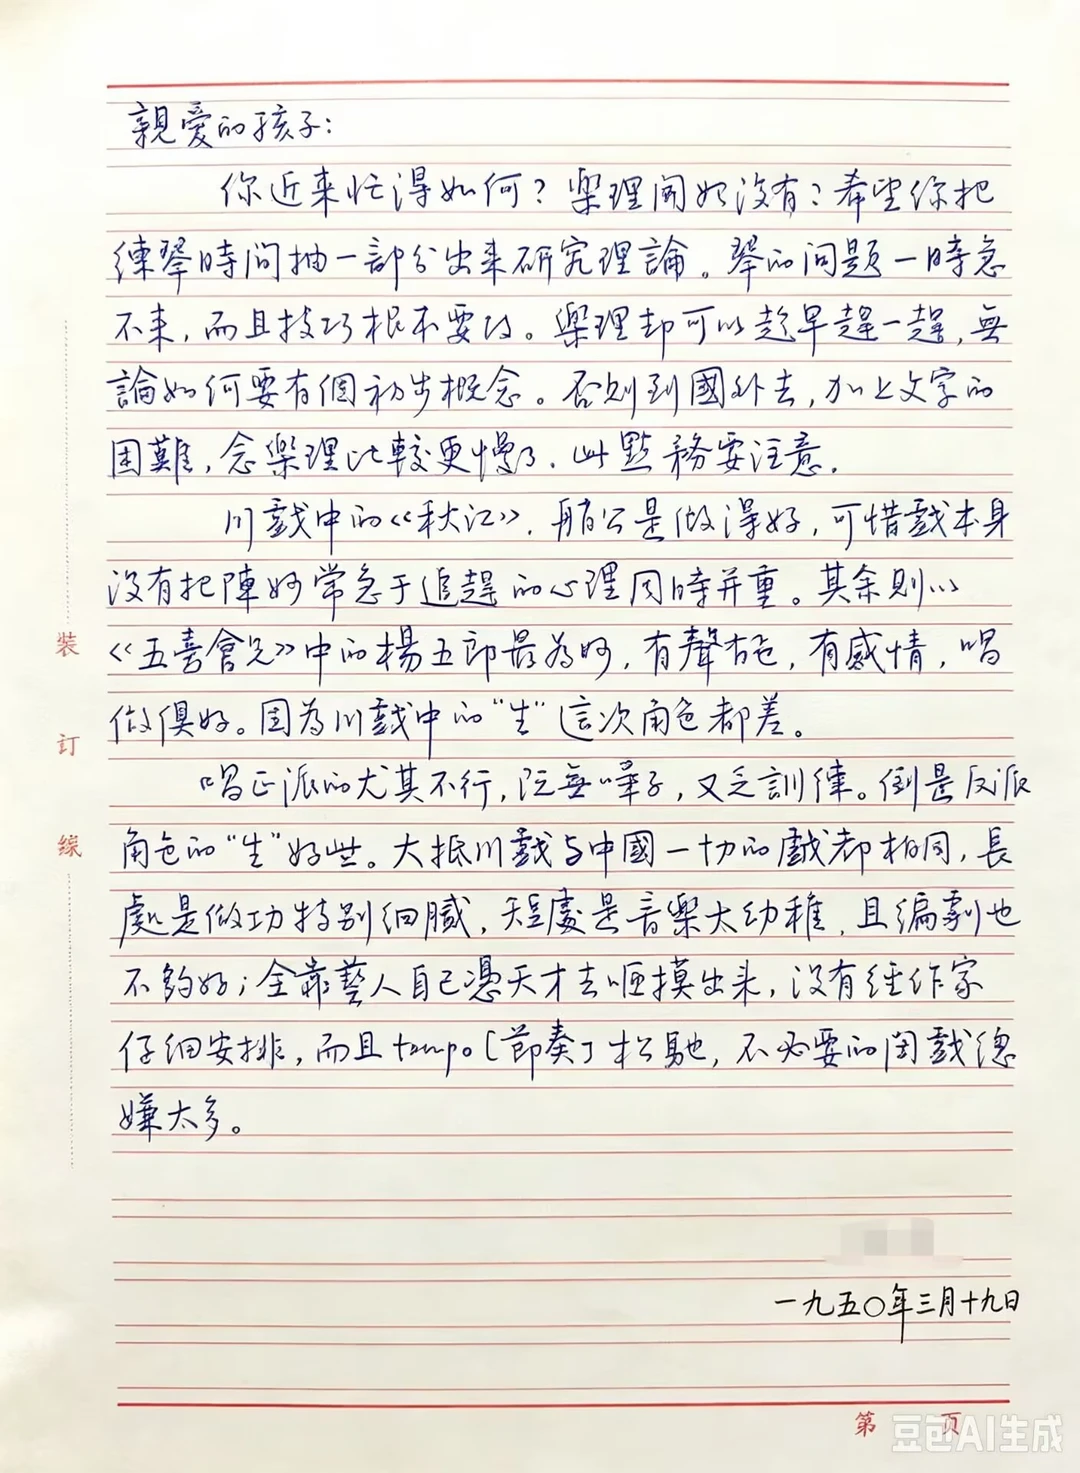 親爱的孩子：
你近来忙得如何？樂理開始没有？希望你把
練琴時間抽一部分出来研究理論。琴的问题一時急
不来，而且技巧根本要改。樂理却可以趁早趕一趕，無
論如何要有個初步概念。否则到國外去，加上文字的
困難，念樂理比較更慢了．此點務要注意．
川戲中的《秋江》．艄公是做得好，可惜戲本身
没有把陳妙常急于追趕的心理同時并重。其余則以
《五臺會兄》中的楊五郎最為好，有聲色，有感情，唱
做俱好。因為川戲中的“生”這次角色都差。
唱正派的尤其不行，既無嗓子，又乏訓練。倒是反派
角色的“生”好些。大抵川戲与中國一切的戲都相同，長
處是做功特别细膩，短處是音樂太幼稚，且編劇也
不够好；全靠藝人自己憑天才去咂摸出来，没有经作家
仔细安排，而且tempo［節奏］松馳，不必要的閑戲總
嫌太多。
一九五〇年三月十九日
装
訂
線
第 页
豆包AI生成